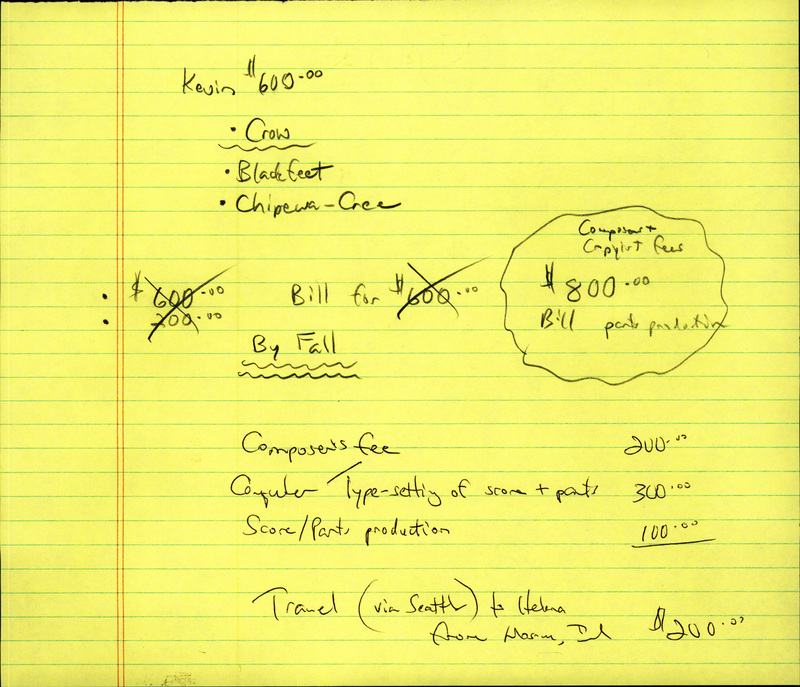 Kevin $600.00
• Crow
• Blackfeet
• Chipewa-Cree
Composer +
Copyist fees
$800.00
Bill parts production
• $600.00 Bill for $600.00
• 200.00
By Fall
Composer's fee 200.00
Computer Type-setting of score + parts 300.00
Score/Parts production 100.00
Travel (via Seattle) to Helena
from $200.00